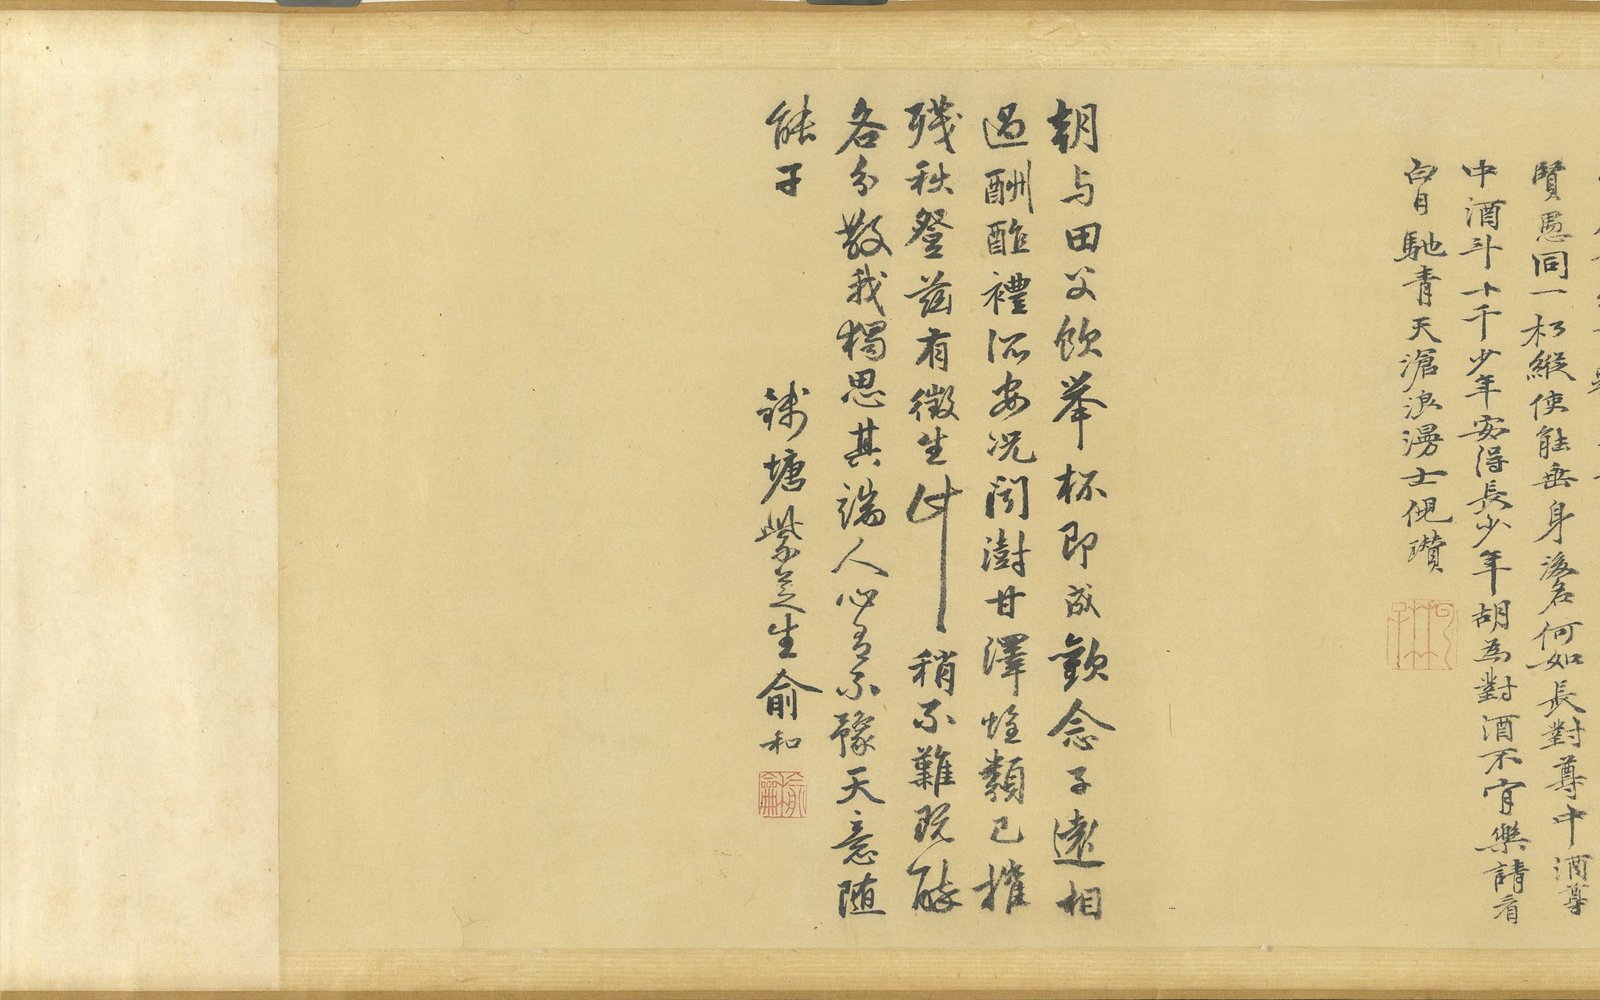 賢愚同一朽縱使能垂身後名何如長對尊中酒尊
中酒斗十千少年安得長少年胡為對酒不肯樂請看
白日馳青天滄浪漫士倪瓚
朝与田父飲舉杯即成歡念子遠相
過酬酢禮所安況聞澍甘澤蝗類已摧
殘秋登茲有徵生計稍不難既醉
各分散我獨思其端人心有不豫天意隨
能干
錢塘紫芝生俞和
俞和